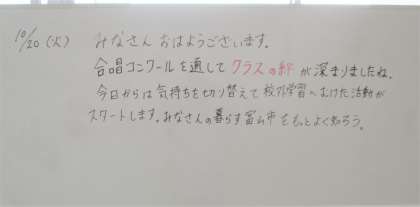 10/20 (火) みなさん おはようございます。
合唱コンクールを通して クラスの絆 が 深まりましたね。
今日からは 気持ちを切り替えて 校外学習へむけた活動が
スタートします。みなさんの暮らす富山市をもっとよく知ろう。